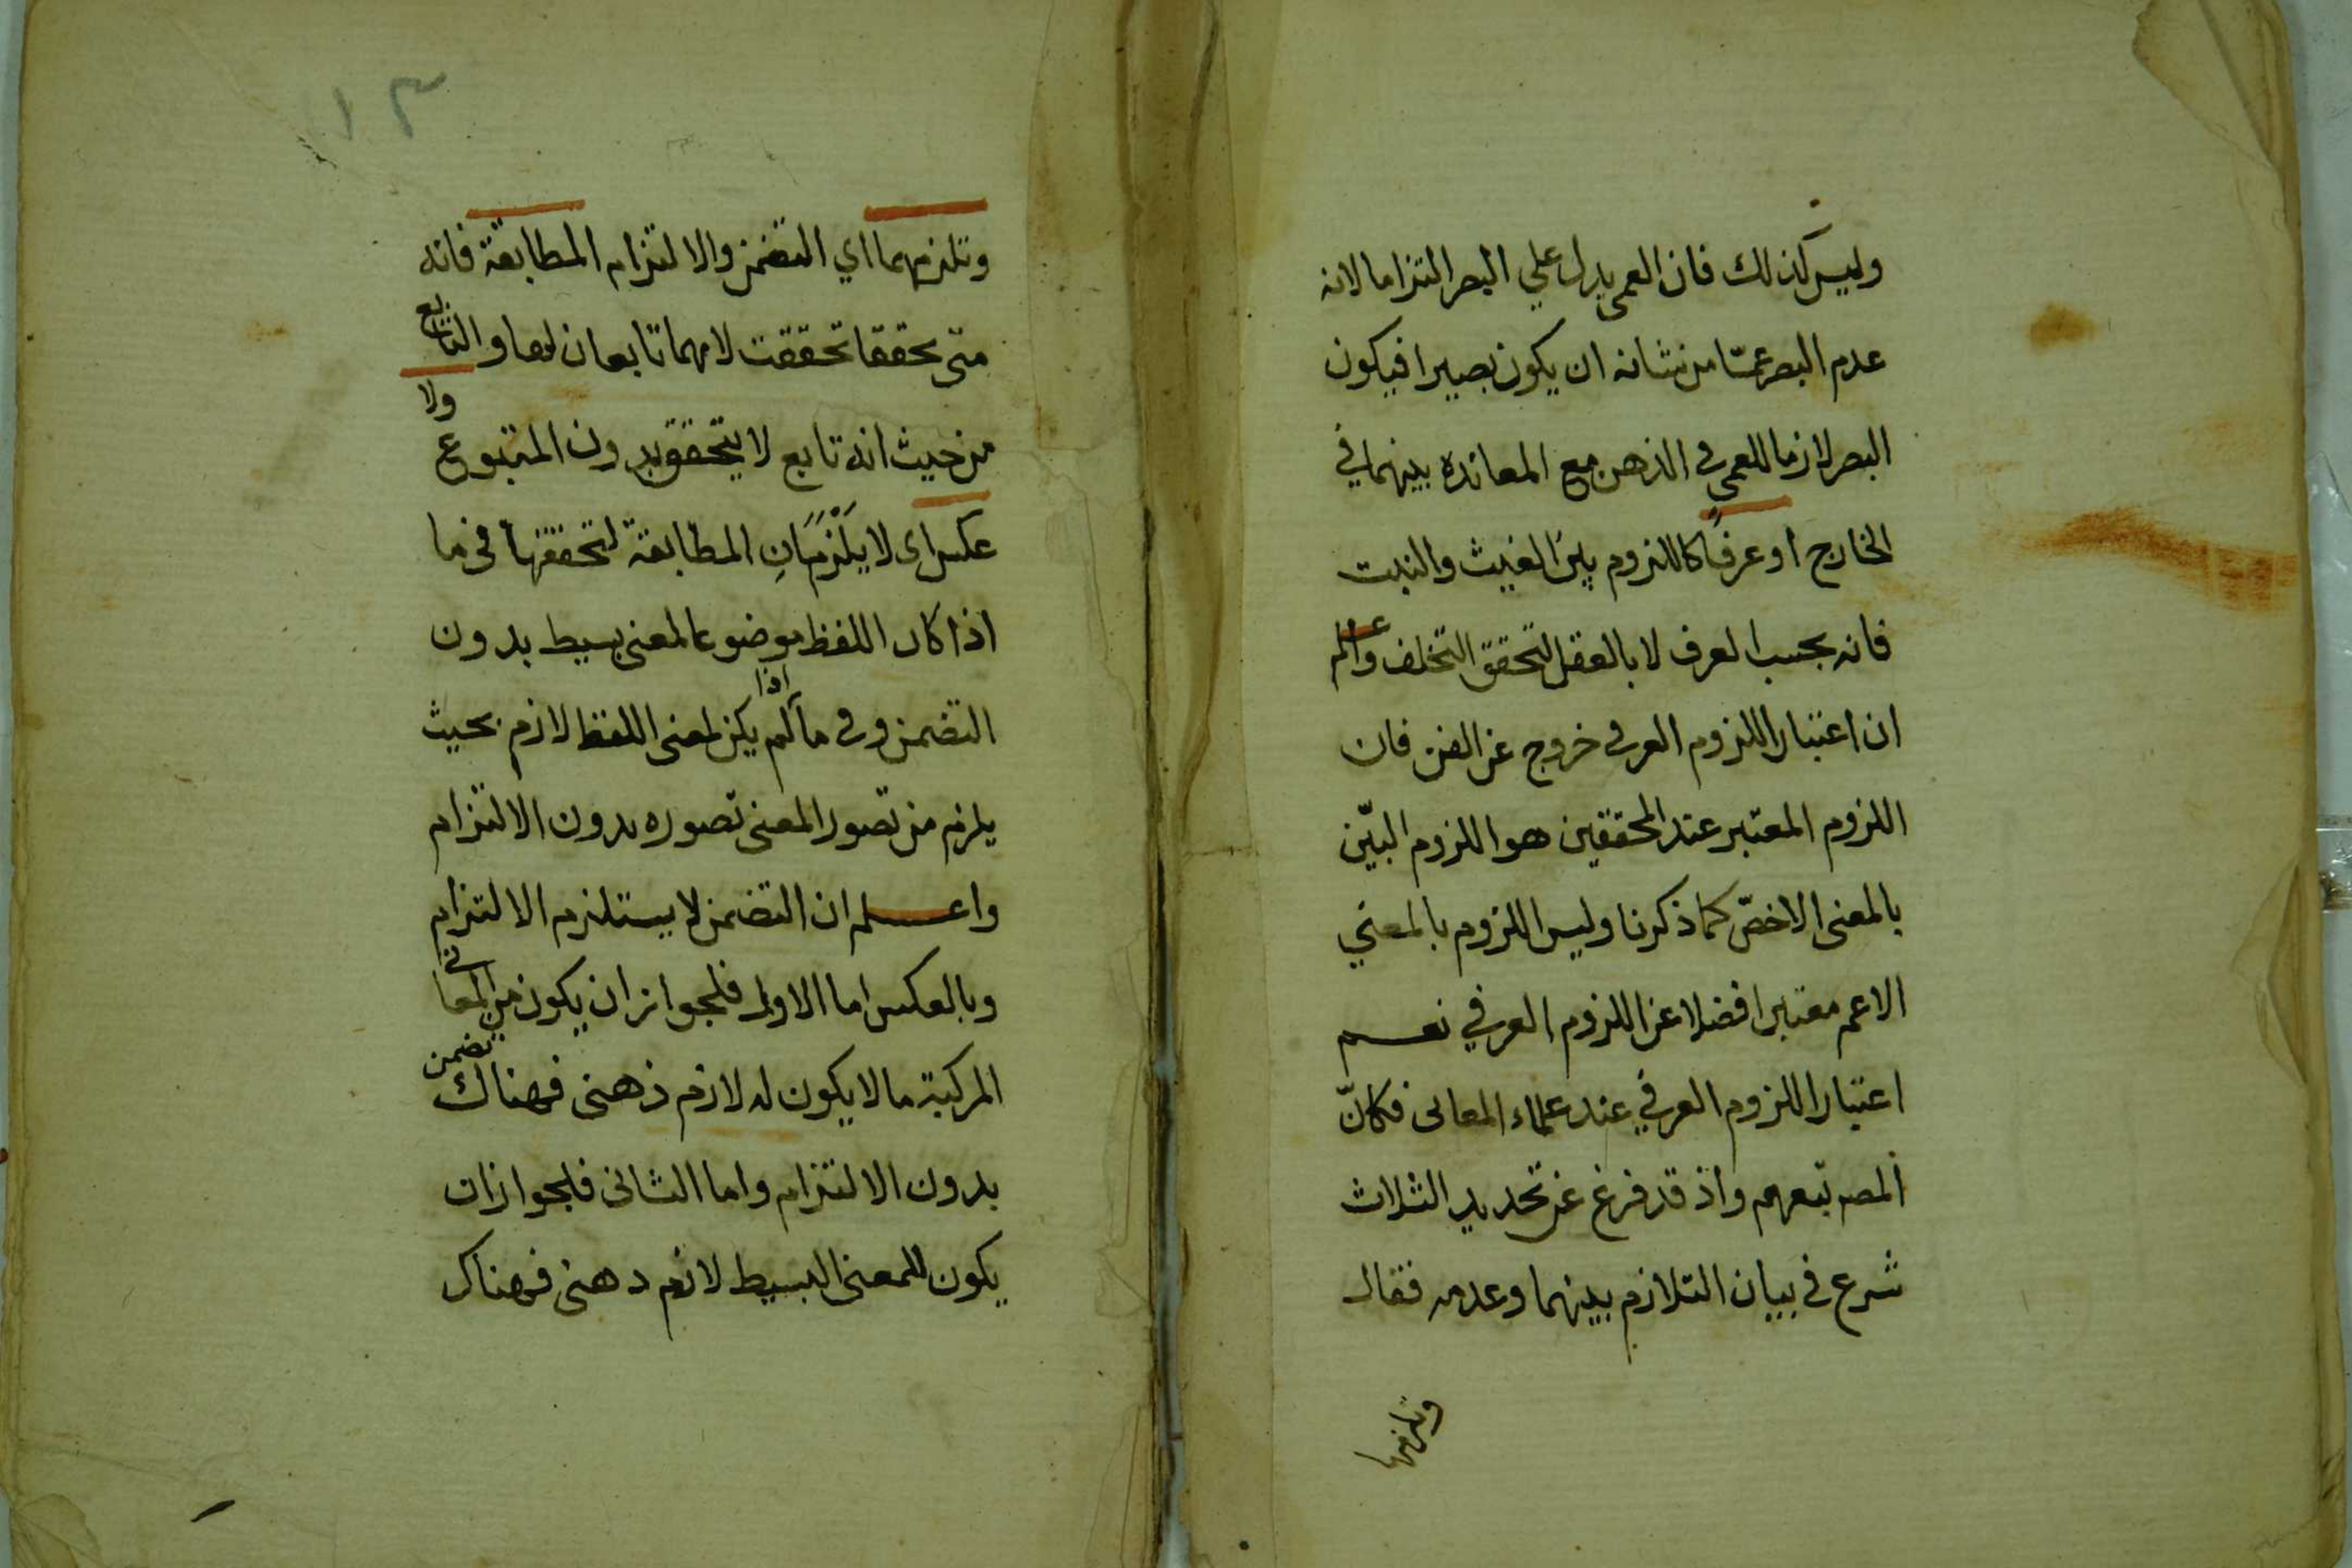 وليس كذلك فان العمى يدل علي البصر التزاما لانه
عدم البصر عمّا من شانه ان يكون بصيرا فيكون
البصر لازما للعمى في الذهن مع المعانده بينهما في
الخارج أو عرفاً كاللزوم بين الغيث والنبت
فانه بحسب العرف لا بالعقل لتحقق التخلف واعلم
ان اعتبار اللزوم العرفى خروج عن الفن فان
اللزوم المعتبر عند المحققين هو اللزوم البيّن
بالمعنى الاخصّ كما ذكرنا وليس اللزوم بالمعني
الاعم معتبرا فضلا عن اللزوم العرفي نعم
اعتبار اللزوم العرفي عند علماء المعانى فكانّ
المصـ تبعهم واذ قد فرغ عن تحديد الثلاث
شرع في بيان التلازم بينهما وعدمه فقال
وتلزمهما
١٣
وتلزمهما اي التضمن والالتزام المطابقة فانه
متى تحققا تحققت لانهما تابعان لها والتابع
من حيث انه تابع لا يتحقق بدون المتبوع ولا
عكس اى لا يَلْزمَانِ المطابقة لتحققها فى ما
اذا كان اللفظ موضوعا لمعنى بسيط بدون
التضمن وفى ما اذا لم يكن لمعنى اللفظ لازم بحيث
يلزم من تصور المعنى تصوره بدون الالتزام
واعلم ان التضمن لا يستلزم الالتزام
وبالعكس اما الاول فلجواز ان يكون من المعانى
المركبة ما لا يكون له لازم ذهنى فهناك تضمن
بدون الالتزام واما الثانى فلجواز ان
يكون للمعنى البسيط لازم دهنى فهناك